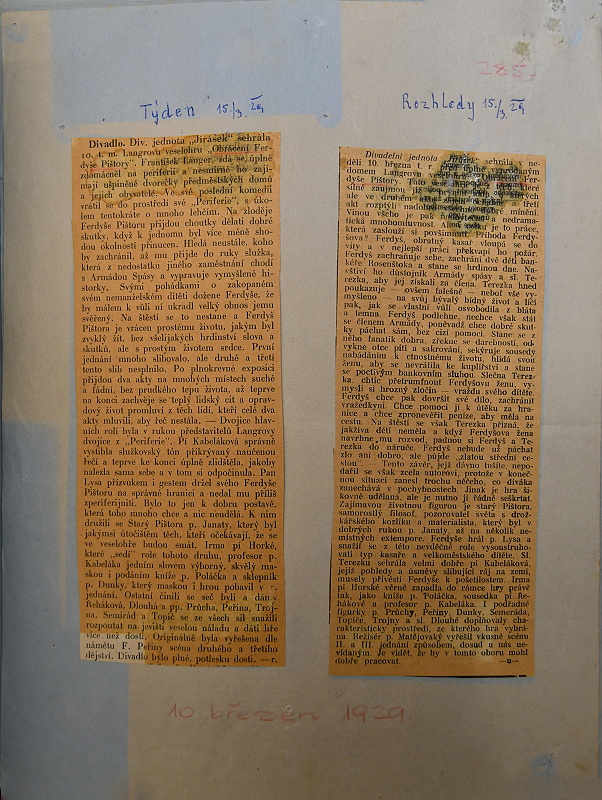 285.
Týden 15./3. 29
Rozhledy 15./3. 29
Divadlo. Div. jednota „Jirásek" sehrála
10. t. m. Langrovu veselohru „Obrácení Fer-
dyše Pištory". František Langer, zdá se, úplně
zdomácněl na periferii a nesmírně ho zají-
mají ušpiněné dvorečky předměstských domů
a jejich obyvatelé. Ve své poslední komedii
vrátil se do prostředí své „Periferie", s úko-
lem tentokráte o mnoho lehčím. Na zloděje
Ferdyše Pištoru přijdou choutky dělati dobré
skutky, když k jednomu byl více méně sho-
dou okolností přinucen. Hledá neustále, koho
by zachránil, až mu přijde do ruky služka,
která z nedostatku jiného zaměstnání chodí
s Armádou Spásy a vypravuje vymyšlené hi-
storky. Svými pohádkami o zakopaném
svém nemanželském dítěti dožene Ferdyše, že
by málem k vůli ní ukradl velký obnos jemu
svěřený. Na štěstí se to nestane a Ferdyš
Pištora je vrácen prostému životu, jakým byl
zvyklý žít, bez všelijakých hrdinství slova a
skutků, ale s prostým životem srdce. První
jednání mnoho slibovalo, ale druhé a třetí
tento slib nesplnilo. Po plnokrevné exposici
přijdou dva akty na mnohých místech suché
a fádní, bez prudkého tepu života, až teprve
na konci zachvěje se teplý lidský cit a oprav-
dový život promluví z těch lidí, kteří celé dva
akty mluvili, aby řeč nestála. — Dvojice hlav-
ních rolí byla v rukou představitelů Langrovy
dvojice z „Periferie". Pí Kabeláková správně
vystihla služkovský tón přikrývaný naučenou
řečí a teprve ke konci úplně zlidštěla, jakoby
nalezla sama sebe a v tom si odpočinula. Pan
Lysa přízvukem i gestem držel svého Ferdyše
Pištoru na správné hranici a nedal mu příliš
zperiferijniti. Bylo to jen k dobru postavě,
která toho mnoho chce a nic neudělá. K nim
družili se Starý Pištora p. Janaty, který byl
jakýmsi útočištěm těch, kteří očekávají, že se
ve veselohře budou smát, Irma pí Horké,
které „sedí" role tohoto druhu, profesor p.
Kabeláka jedním slovem výborný, skvělý ma-
skou i podáním kníže p. Poláčka a sklepník
p. Dunky, který maskou i hrou pobavil v
jednání. Ostatní činili se seč byli a dámy
Řeháková, Dlouhá a pp. Průcha, Peřina, Troj-
na, Semirád a Topič se ze všech sil snažili
rozpoutat na jevišti veselou náladu a dáti hře
více než dosti. Originálně byla vyřešena dle
námětu F. Peřiny scéna druhého a třetího
dějství. Divadlo bylo plné, potlesku dosti. —r.
Divadelní jednota „Jirásek" sehrála v ne-
děli 10. března t. r. před úplně vyprodaným
domem Langrovu veselohru Obrácení Fer-
dyše Pištory. Tato
silně zaujmou
ale ve druhém třetí
akt rozptýlí nadobro dobré mínění.
Vinou všeho je pak nedrama-
tická mnohomluvnost. Ale je to práce,
která zaslouží si povšimnutí. Příhoda Ferdy-
šova? Ferdyš, obratný kasař vloupá se do
vily a v nejlepší práci překvapí ho požár,
Ferdyš zachraňuje sebe, zachrání i dětí ban-
kéře Rosenštoka a stane se hrdinou dne. Na-
vštíví ho důstojník Armády spásy a sl. Te-
rezka, aby jej získali za člena. Terezka hned
poukazuje — ovšem falešně — neboť vše vy-
myšleno — na svůj bývalý bídný život a líčí
pak, jak se vlastní vůlí osvobodila z bláta
a temna. Ferdyš podlehne, nechce však stát
se členem Armády, poněvadž chce dobré skut-
ky páchat sám, bez cizí pomoci. Stane se z
něho fanatik dobra, zřekne se darebností, od-
vykne otce pití a sakrování, sekýruje sousedy
nabádáním k ctnostnému životu, hlídá svou
ženu, aby se nevrátila ke kuplířství a stane
se poctivým bankovním sluhou. Slečna Terez-
ka, chtíc přetrumfnout Ferdyšovu ženu, vy-
myslí si hrozný zločin — vraždu svého dítěte.
Ferdyš chce pak dovršit své dílo, zachránit
vražedkyni. Chce pomoci jí k útěku za hra-
nice a chce zpronevěřit peníze, aby měla na
cestu. Na štěstí se však Terezka přizná, že
jakživa dětí neměla a když Ferdyšova žena
navrhne mu rozvod, padnou si Ferdyš a Te-
rezka do náruče. Ferdyš nebude už páchat
zlo ani dobro, ale půjde „zlatou střední ce-
stou". — Tento závěr, jejž dávno tušíte, nepo-
dařil se však zcela autorovi, protože v koneč-
nou situaci zanesl trochu něčeho, co diváka
zanechává v pochybnostech. Jinak je hra ši-
kovně udělaná, ale je nutno ji řádně seškrtat.
Zajímavou životnou figurou je starý Pištora,
samorostlý filosof, pozorovatel světa s drož-
kářského kozlíku a materialista, který byl v
dobrých rukou p. Janaty, až na několik ne-
místných extempore. Ferdyše hrál p. Lysa a
snažil se z této nevděčné role vysoustruho-
vati typ kasaře a velkoměstského dítěte. Sl.
Terezku sehrála velmi dobře pí Kabeláková,
jejíž pohledy a úsměvy slibující ráj na zemi,
musely přivésti Ferdyše k pošetilostem. Irma
pí Horské věrně zapadla do rámce hry právě
tak, jako kníže p. Poláčka, sousedka pí Ře-
hákové a profesor p. Kabeláka. I podřadné
figurky p. Průchy, Peřiny, Dunky, Semeráda,
Topiče, Trojny a sl. Dlouhé doplňovaly cha-
rakteristicky prostředí, ze kterého hra vybrá-
na. Režisér p. Matějovský vyřešil vkusně scénu
II. a III. jednání způsobem, dosud u nás ne-
vídaným. Je vidět, že by v tomto oboru mohl
dobře pracovat. —u—
10 březen 1929.